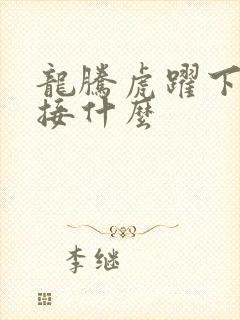 龍騰虎躍下
接什麼
李继